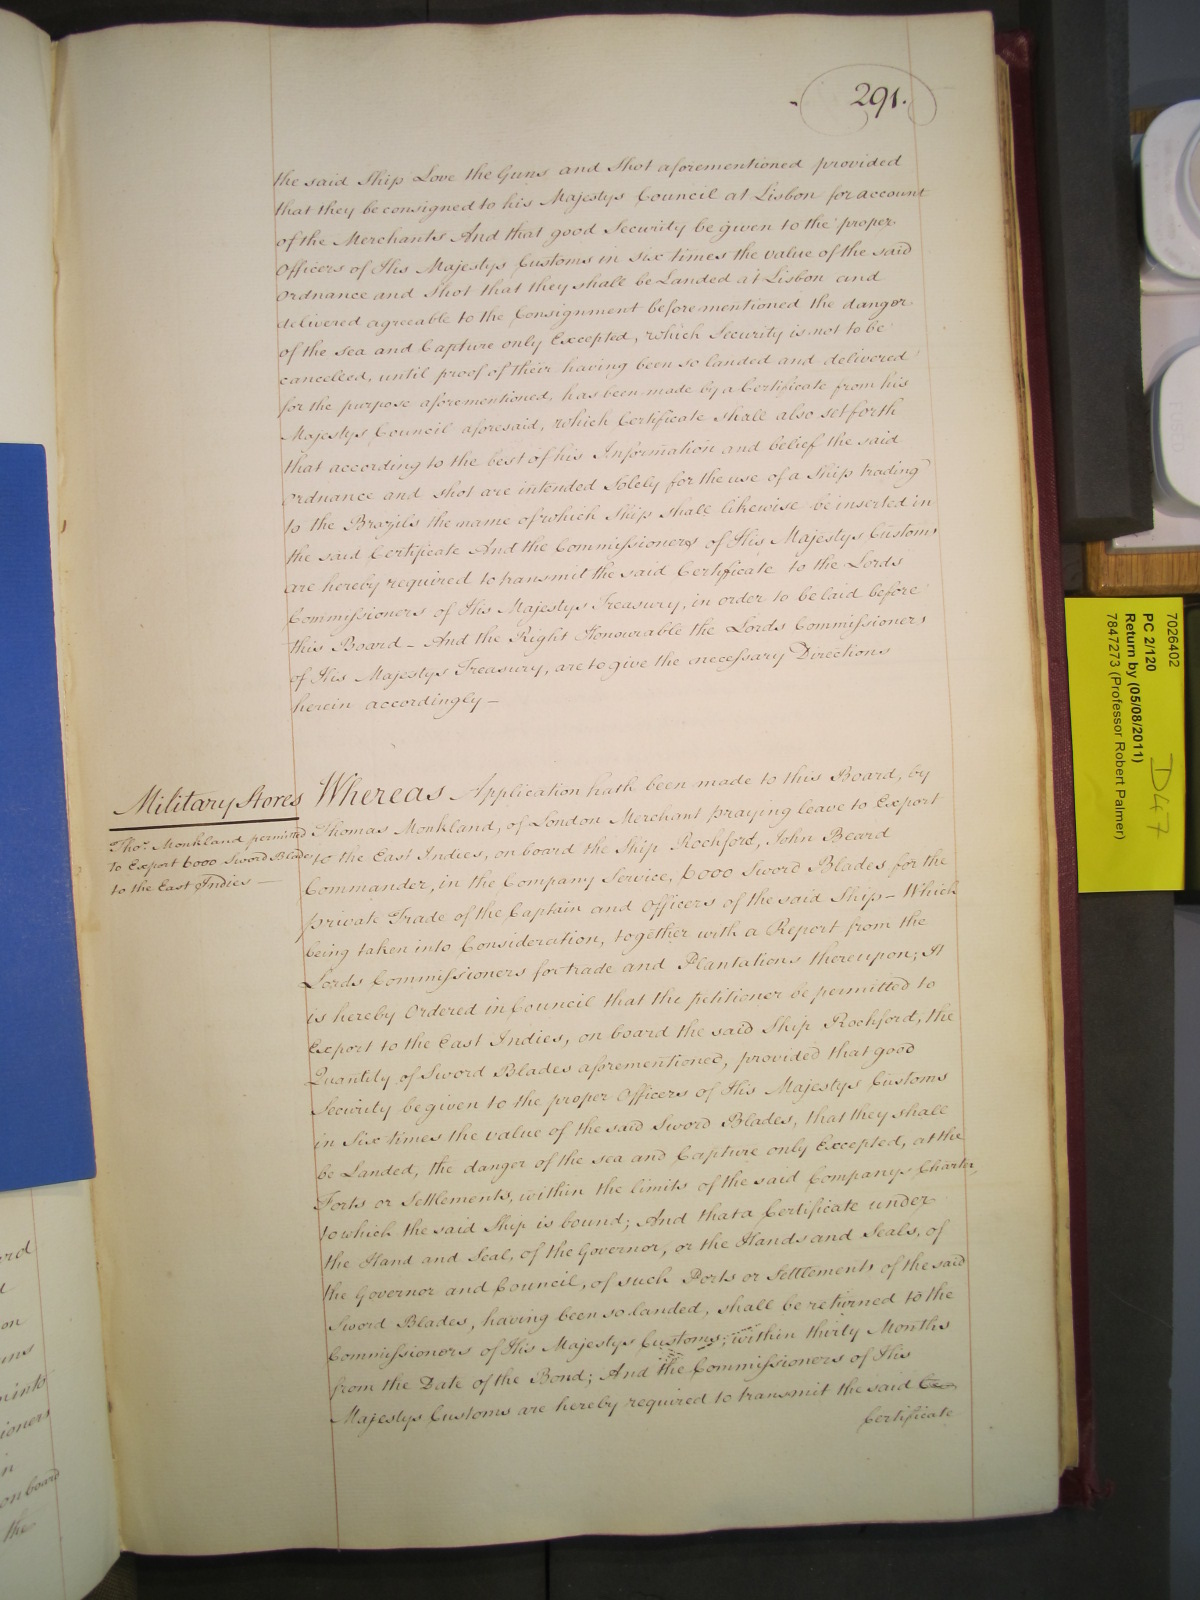 291.
the said Ship Love the Guns and Shot aforementioned provided
that they be consigned to his Majestys Council at Lisbon for account
of the Merchants And that good Security be given to the proper
Officers of His Majestys Customs in six times the value of the said
Ordnance and Shot that they shall be Landed at Lisbon and
delivered agreeable to the Consignment beforementioned the danger
of the sea and Capture only Excepted, which Security is not to be
cancelled, until proof of their having been so landed and delivered
for the purpose aforementioned, has been made by a Certificate from his
Majestys Council aforesaid, which Certificate shall also set forth
that according to the best of his Information and belief the said
Ordnance and Shot are intended Solely for the use of a Ship trading
to the Brazils the name of which Ship shall likewise be inserted in
the said Certificate And the Commissioners of His Majestys Customs
are hereby required to transmit the said Certificate to the Lords
Commissioners of His Majestys Treasury, in order to be laid before
this Board - And the Right Honourable the Lords Commissioners
of His Majestys Treasury, are to give the necessary Directions
herein accordingly -
Military Stores
Thos. Monkland permitted
to Export 6000 Sword Blades
to the East Indies -
Whereas Application hath been made to this Board, by
Thomas Monkland, of London Merchant praying leave to Export
to the East Indies, on board the Ship Rochford, John Beard
Commander, in the Company Service, 6000 Sword Blades for the
private Trade of the Captain and Officers of the said Ship - Which
being taken into Consideration, together with a Report from the
Lords Commissioners for trade and Plantations thereupon; It
is hereby Ordered in Council that the petitioner be permitted to
Export to the East Indies, on board the said Ship Rochford, the
Quantity of Sword Blades aforementioned, provided that good
Security be given to the proper Officers of His Majestys Customs
in Six times the value of the said Sword Blades, that they shall
be Landed, the danger of the sea and Capture only Excepted, at the
Forts or Settlements, within the limits of the said Companys Charter,
to which the said Ship is bound; And that a Certificate under
the Hand and Seal, of the Governor, or the Hands and Seals, of
the Governor and Council, of such Ports or Settlements of the said
Sword Blades, having been so landed, shall be returned to the
Commissioners of His Majestys Customs; within thirty Months
from the Date of the Bond; And the Commissioners of His
Majestys Customs are hereby required to transmit the said
Certificate
7026402
PC 2/120
Return by (05/08/2011)
7847273 (Professor Robert Palmer)
D47
ord
on
uns
ioners
in
on board
the